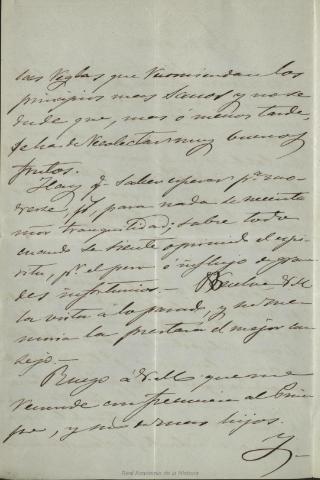 las reglas que recomiendan los
principios mas sanos, y no se
dude que, mas ó menos tarde,
se han de recolectar muy buenos
frutos.
Hay q.e saber esperar p.a mo-
verse, p.s, para nada se necesita
mor tranquilidad; sobre todo
cuando se siente oprimido el espi-
ritu, p.r el peso ó influjo de gran-
des infortunios.— Vuelva V.M.
la vista á lo pasado, y su me-
moria la prestará el mejor con-
sejo.—
Ruego á V.M. que me
recuerde con frecuencia al Prin-
cipe, y sus demas hijos.
Y—
Real Academia de la Historia